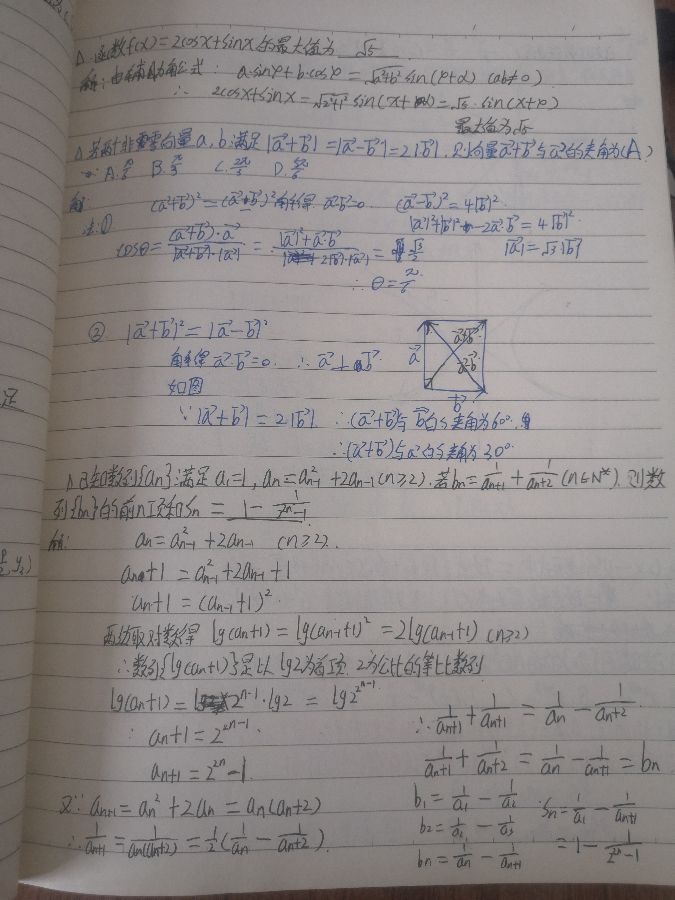 △.函数f(x)=2cosx+sinx的最大值为 √5
解:由辅助角公式: a·sinφ+b·cosφ=√(a²+b²) sin(φ+α) (ab≠0)
∴ 2cosx+sinx=√(2²+1²) sin(x+φ)=√5·sin(x+φ)
最大值为√5
△若两个非零向量a,b满足|a⃗+b⃗|=|a⃗-b⃗|=2|b⃗|,则向量a⃗+b⃗与a⃗的夹角为(A)
A.π/6 B.π/3 C.2π/3 D.5π/6
解 (a⃗+b⃗)²=(a⃗-b⃗)²解得 a⃗·b⃗=0. (a⃗-b⃗)²=4|b⃗|².
法:① |a⃗|²+|b⃗|²-2a⃗·b⃗=4|b⃗|².
cosθ=(a⃗+b⃗)·a⃗/|a⃗+b⃗|·|a⃗|=|a⃗|²+a⃗·b⃗/2|b⃗|·|a⃗|=√3/2 |a⃗|=√3|b⃗|
∴θ=π/6
② |a⃗+b⃗|²=|a⃗-b⃗|²
解得a⃗·b⃗=0. ∴a⃗⊥b⃗.
a⃗ a⃗+b⃗ a⃗-b⃗ b⃗
如图
∵|a⃗+b⃗|=2|b⃗| ∴(a⃗+b⃗)与b⃗的夹角为60°.
∴(a⃗+b⃗)与a⃗的夹角为30°
△已知数列{an}满足a₁=1,an=a²n-1+2an-1(n≥2).若bn=1/(an+1)+1/(an+2)(n∈N*).则数
列{bn}的前n项和Sn= 1-1/(2^(2^n)-1)
解: an=a²n-1+2an-1 (n≥2).
an+1=a²n-1+2an-1+1
an+1=(an-1+1)²
两边取对数得 lg(an+1)=lg(an-1+1)²=2lg(an-1+1) (n≥2)
∴数列{lg(an+1)}是以lg2为首项.2为公比的等比数列
lg(an+1)=2^(n-1)·lg2=lg2^(2^(n-1))
∴ an+1=2^(2^(n-1)).
an+1=2^(2^n)-1.
又∵an+1=an²+2an=an(an+2)
∴1/an+1=1/an(an+2)=1/2(1/an-1/an+2).
∴1/an+1+1/an+1=1/an-1/an+2.
1/an+1+1/an+2=1/an-1/an+1=bn
b₁=1/a₁-1/a₂ ∴Sn=1/a₁-1/an+1
b₂=1/a₂-1/a₃ =1-1/(2^(2^n)-1)
bn=1/an-1/an+1
足